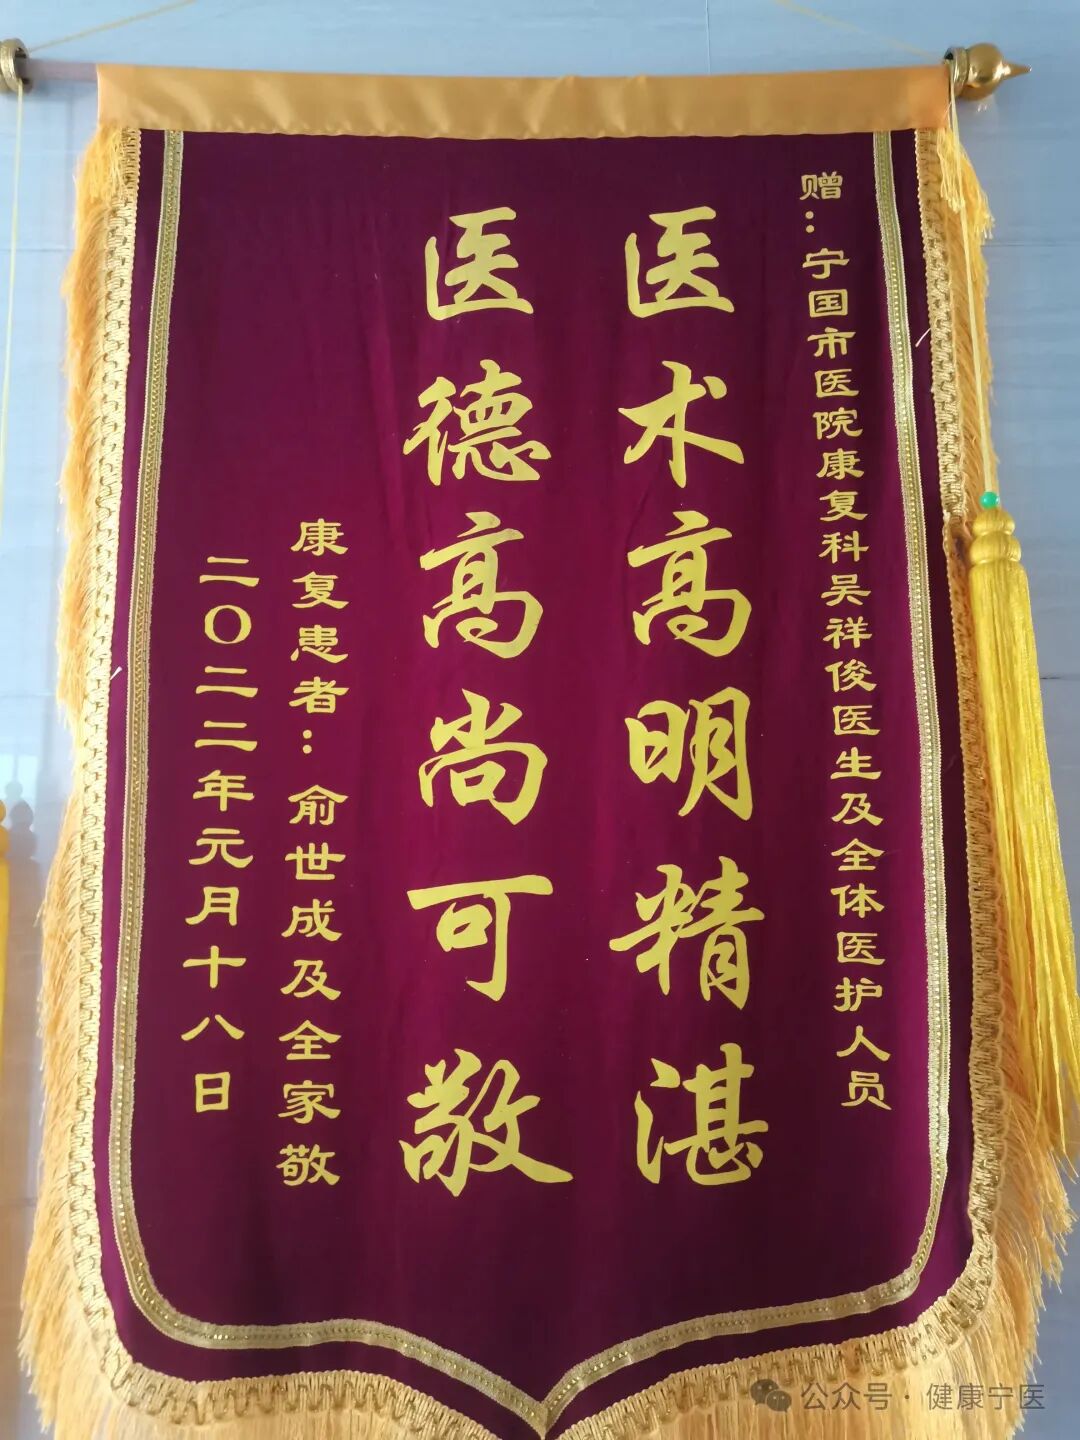 赠：宁国市医院康复科吴祥俊医生及全体医护人员
医术高明精湛
医德高尚可敬
康复患者：俞世成及全家敬
二〇二二年元月十八日
公众号·健康宁医